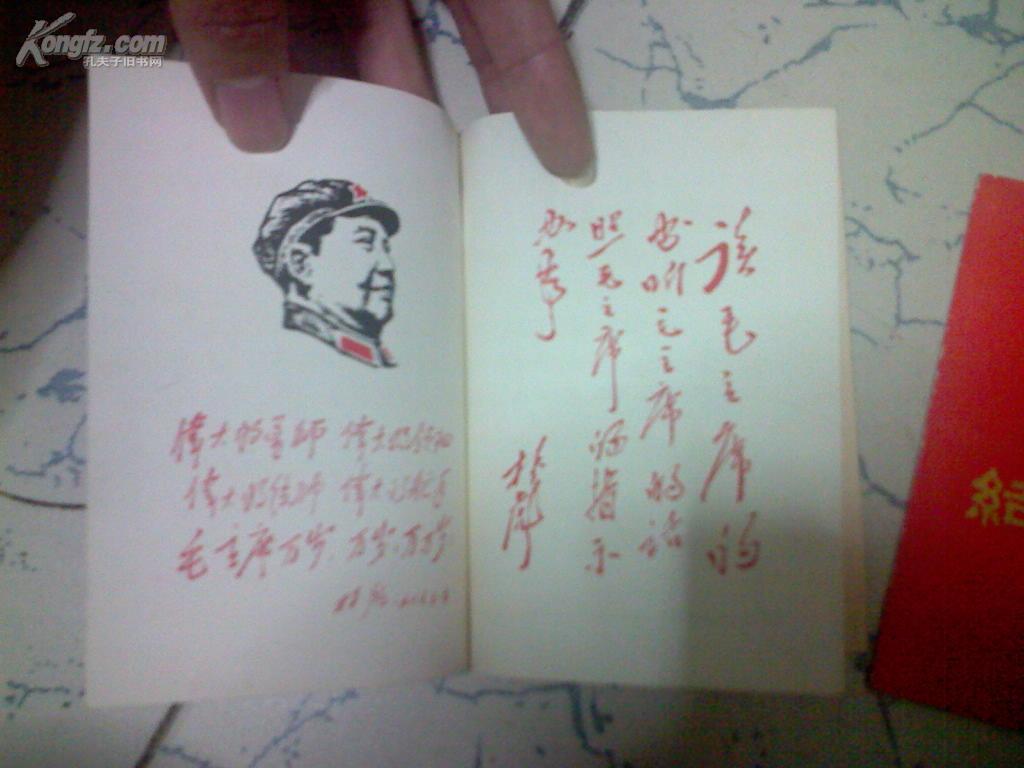 Kongfz.com
孔夫子旧书网
伟大的导师 伟大的领袖
伟大的统帅 伟大的舵手
毛主席万岁!万岁!万万岁!
林彪
读毛主席的
书听毛主席的话
照毛主席的指示
办事
林彪
結